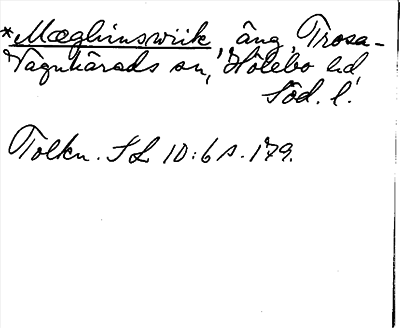 *Mæghinswiik, äng, Trosa-
Vagnhärads sn, Hölebo hd,
Söd. l.
Tolkn. SL 10:6 s. 179.